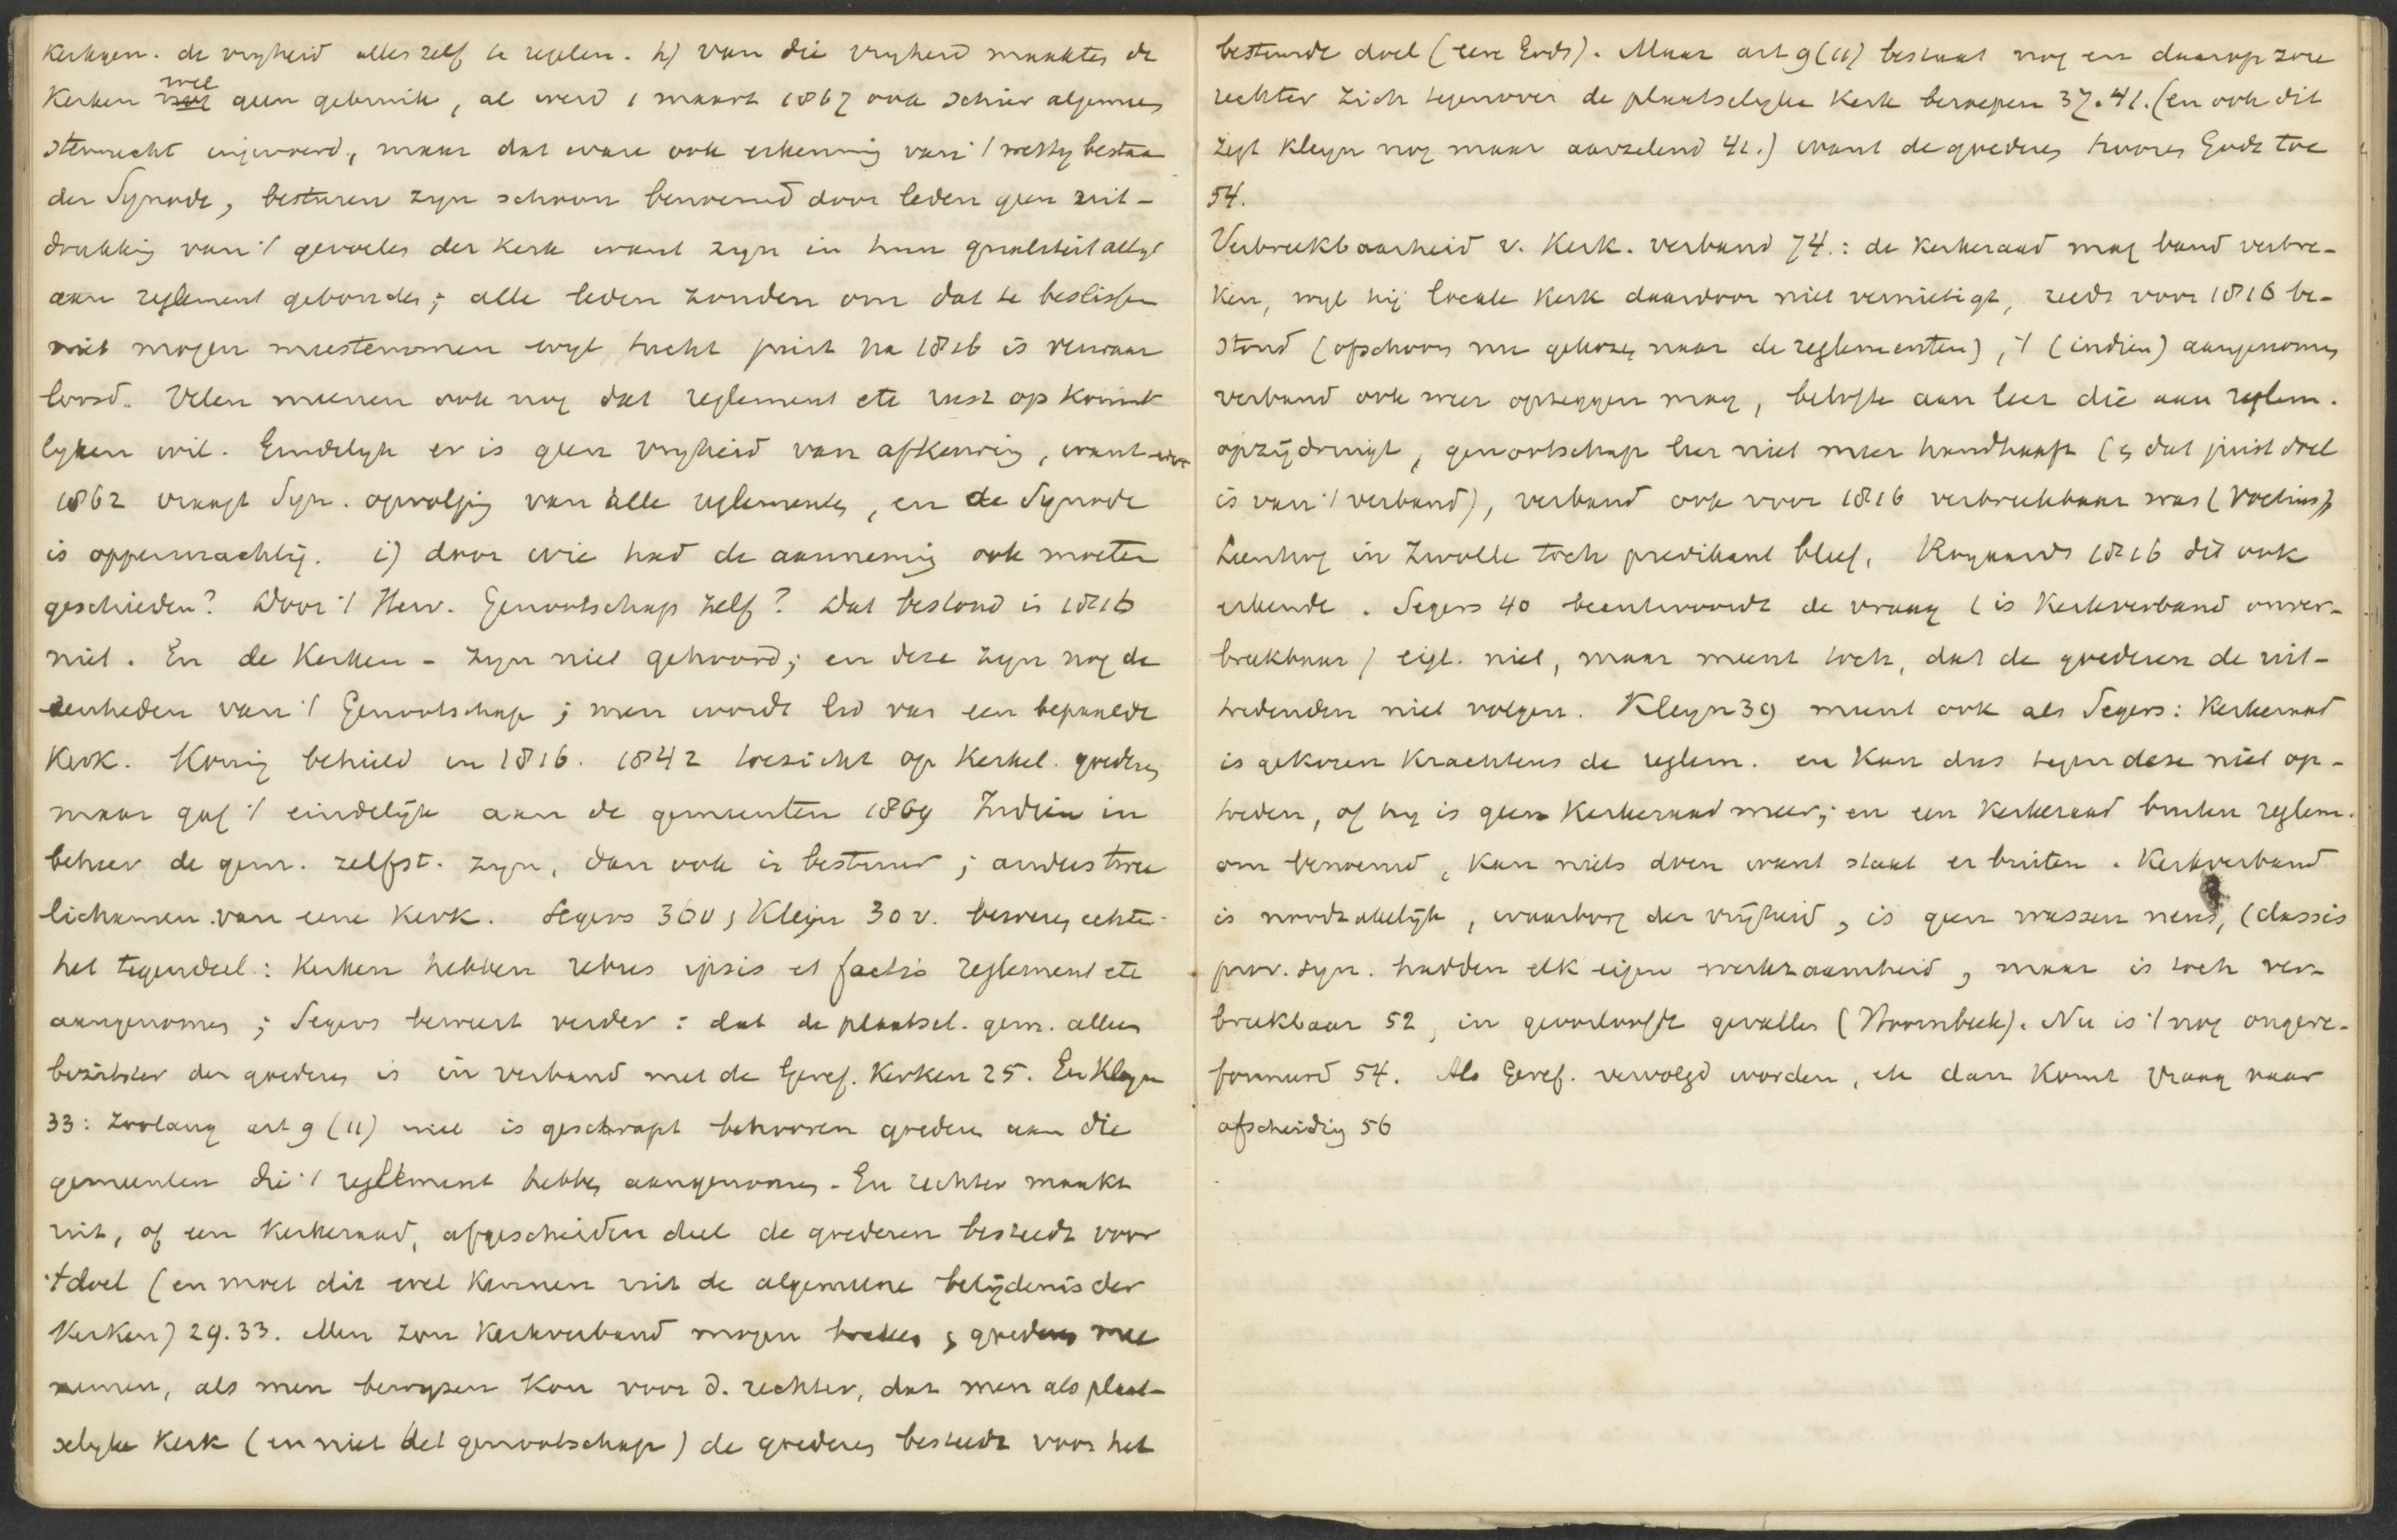 Kerkgen. de vryheid alles zelf te regelen. h) van die vryheid maakten de
Kerken wel geen gebruik, al werd 1 maart 1867 ook schier algemeen
stemrecht ingevoerd, maar dat ware ook erkenning van 't wettig bestaan
der Synode, besturen zyn schoon benoemd door leden geen uit-
drukking van 't gevoelen der Kerk want zyn in hun qualiteit altyd
aan reglement gebonden; alle leden zouden om dat te beslissen
niet mogen meestemmen wyl tucht juist na 1816 is verwaar
loosd. Velen meenen ook nog dat reglement etc rust op Konink
lyken wil. Eindelyk er is geen vryheid van afkeuring, want
1862 vraagt Syn. opvolging van alle reglementen, en de Synode
is oppermachtig. i) door wie had de aanneming ook moeten
geschieden? Door 't Herv. Genootschap zelf? Dat bestond in 1816
niet. En de Kerken - zyn niet gehoord; en deze zyn nog de
eenheden van 't Genootschap; men wordt lid van een bepaalde
Kerk. Koning behield in 1816. 1842 toezicht op Kerkel. goederen
maar gaf 't eindelijk aan de gemeenten 1869 Indien in
beheer de gem. zelfst. zyn, dan ook in bestuur; anders twee
lichamen van eene Kerk. Segers 36v; Kleijn 30v. beweren echter
het tegendeel: Kerken hebben rebus ipsis et factis reglement etc
aangenomen; Segers beweert verder: dat de plaatsel. gem. alleen
bezitster der goederen is in verband met de Geref. Kerken 25. En Kleyn
33: Zoolang art 9 (11) niet is geschrapt behooren goederen aan die
gemeenten die 't reglement hebben aangenomen. En rechter maakt
uit, of een Kerkeraad, afgescheiden deel de goederen besteedt voor
't doel (en moet dit wel kennen uit de algemeene belijdenis der
Kerken) 29.33. Men zou Kerkverband mogen breken & goederen mee
nemen, als men bewyzen kon voor d. rechter, dat men als plaat-
selyke Kerk (en niet het genootschap) de goederen besteedt voor het
bestemde doel (eere Gods). Maar art 9 (11) bestaat nog en daarop zou
rechter zich tegenover de plaatselyke Kerk beroepen 37.41. (en ook dit
zegt Kleyn nog maar aarzelend 41.) want de goederen hooren Gode toe
54.
Verbreekbaarheid v. Kerk. verband 74.: de Kerkeraad mag band verbre-
ken, wyl hij locale Kerk daardoor niet vernietigt, reeds voor 1816 be-
stond (ofschoon nu gekozen naar de reglementen), 't (indien) aangenomen
verband ook weer opzeggen mag, belofte aan leer die aan reglem.
opzijdringt, genootschap leer niet meer handhaaft (& dat juist doel
is van 't verband), verband ook voor 1816 verbreekbaar was (Voetius),
in Zwolle toch predikant bleef, Royaards 1816 dit ook
erkende. Segers 40 beantwoordt de vraag (is Kerkverband onver-
breekbaar) eigl. niet, maar meent toch, dat de goederen de uit-
tredenden niet volgen. Kleyn 39 meent ook als Segers: Kerkeraad
is gekozen krachtens de reglem. en kan dus tegen deze niet op-
treden, of hy is geen Kerkeraad meer; en een Kerkeraad buiten reglem.
om benoemd, kan niets doen want staat er buiten. Kerkverband
is noodzakelijk, waarborg der vrijheid, is geen wassen neus, (classis
prov. syn. hadden elk eigen werkzaamheid, maar is toch ver-
breekbaar 52, in geoorloofde gevallen (Hoornbeek). Nu is 't nog ongere-
formeerd 54. Als Geref. vervolgd worden, etc dan komt vraag naar
afscheiding 56